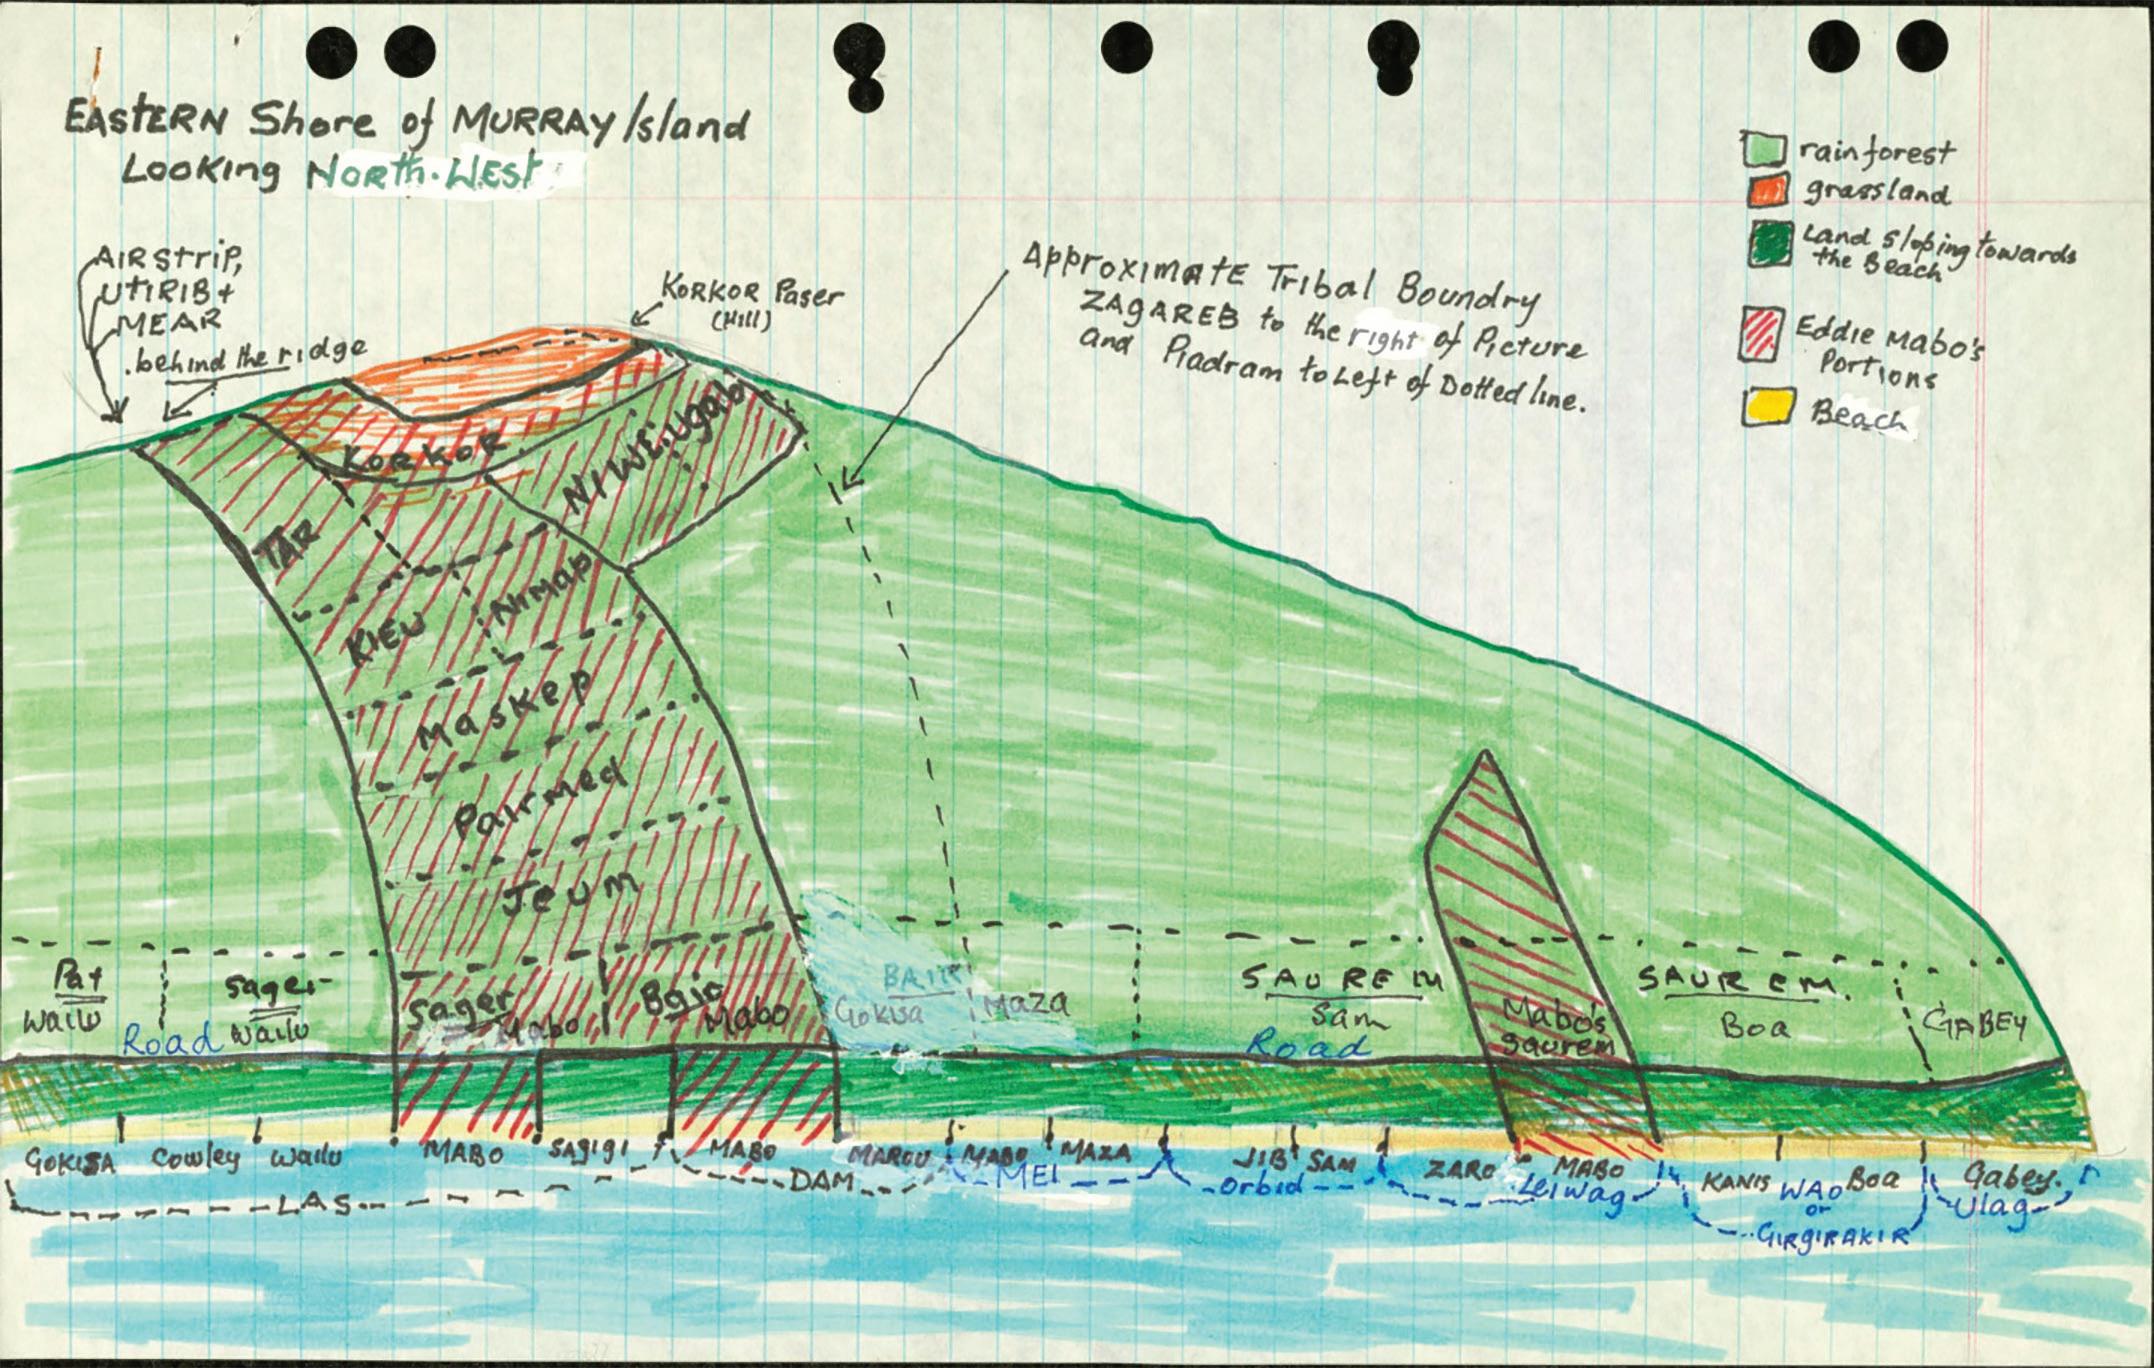 EASTERN Shore of MURRAY Island
Looking North-West
rainforest
grassland
Land Sloping towards
the Beach
Eddie Mabo's
Portions
Beach
AIRSTRIP,
UTIRIB +
MEAR
behind the ridge
KORKOR Paser
(Hill)
Approximate Tribal Boundry
ZAGAREB to the right of Picture
and Piadram to Left of Dotted line.
KORKOR
NIWE:Ugab
TAR
KIEU
NIMAP
Maskep
Pairmed
Jeum
Pat
Wailu
Road
Sager
Wailu
Sager
Mabo
Baio
Mabo
BAIR
Gokisa
Maza
SAUREM
Sam
Road
Mabo's
Saurem
SAUREM.
Boa
GABEY
GOKISA
Cowley
Wailu
MABO
SAGIGI
MABO
MAROU
MABO
MAZA
JIB
SAM
ZARO
MABO
KANIS
Boa
Gabey.
LAS
DAM
MEI
Orbid
Leiwag
WAO
or
GIRGIRAKIR
Ulag